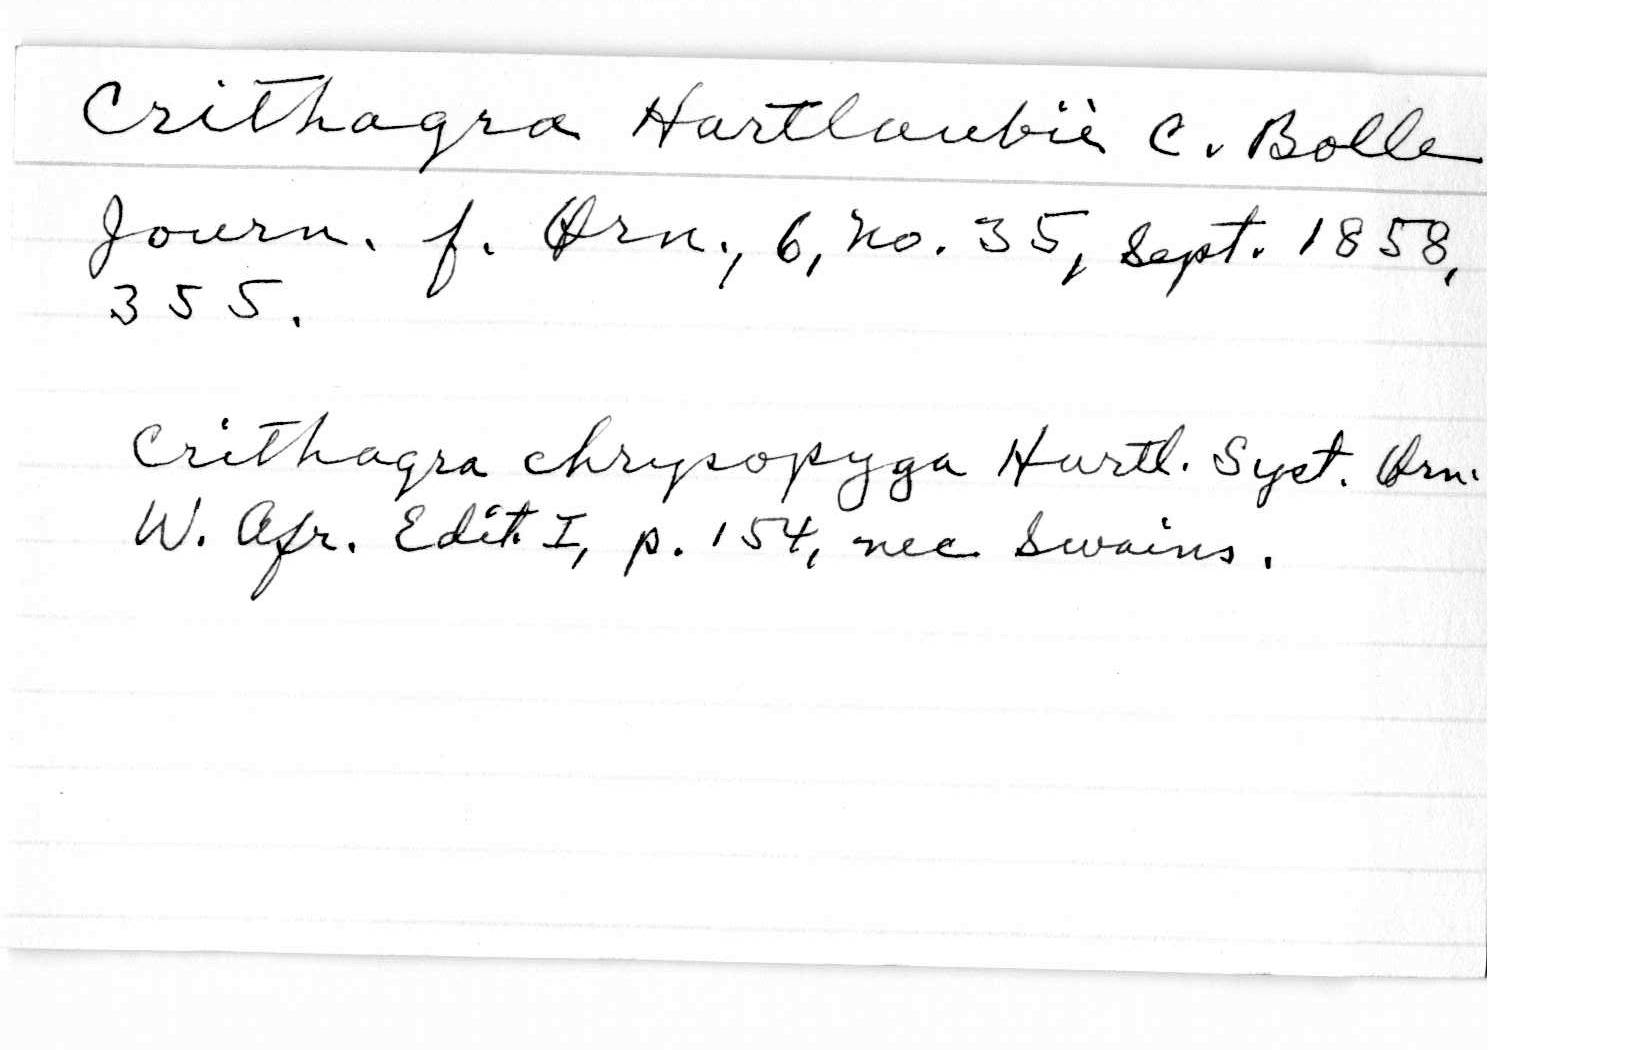 Crithagra Hartlaubii C. Bolle
Journ. f. Orn., 6, no. 35, Sept. 1858,
355.
Crithagra chrysopyga Hartl. Syst. Orn.
W. Afr. Edit. I, p. 154, nec Swains.